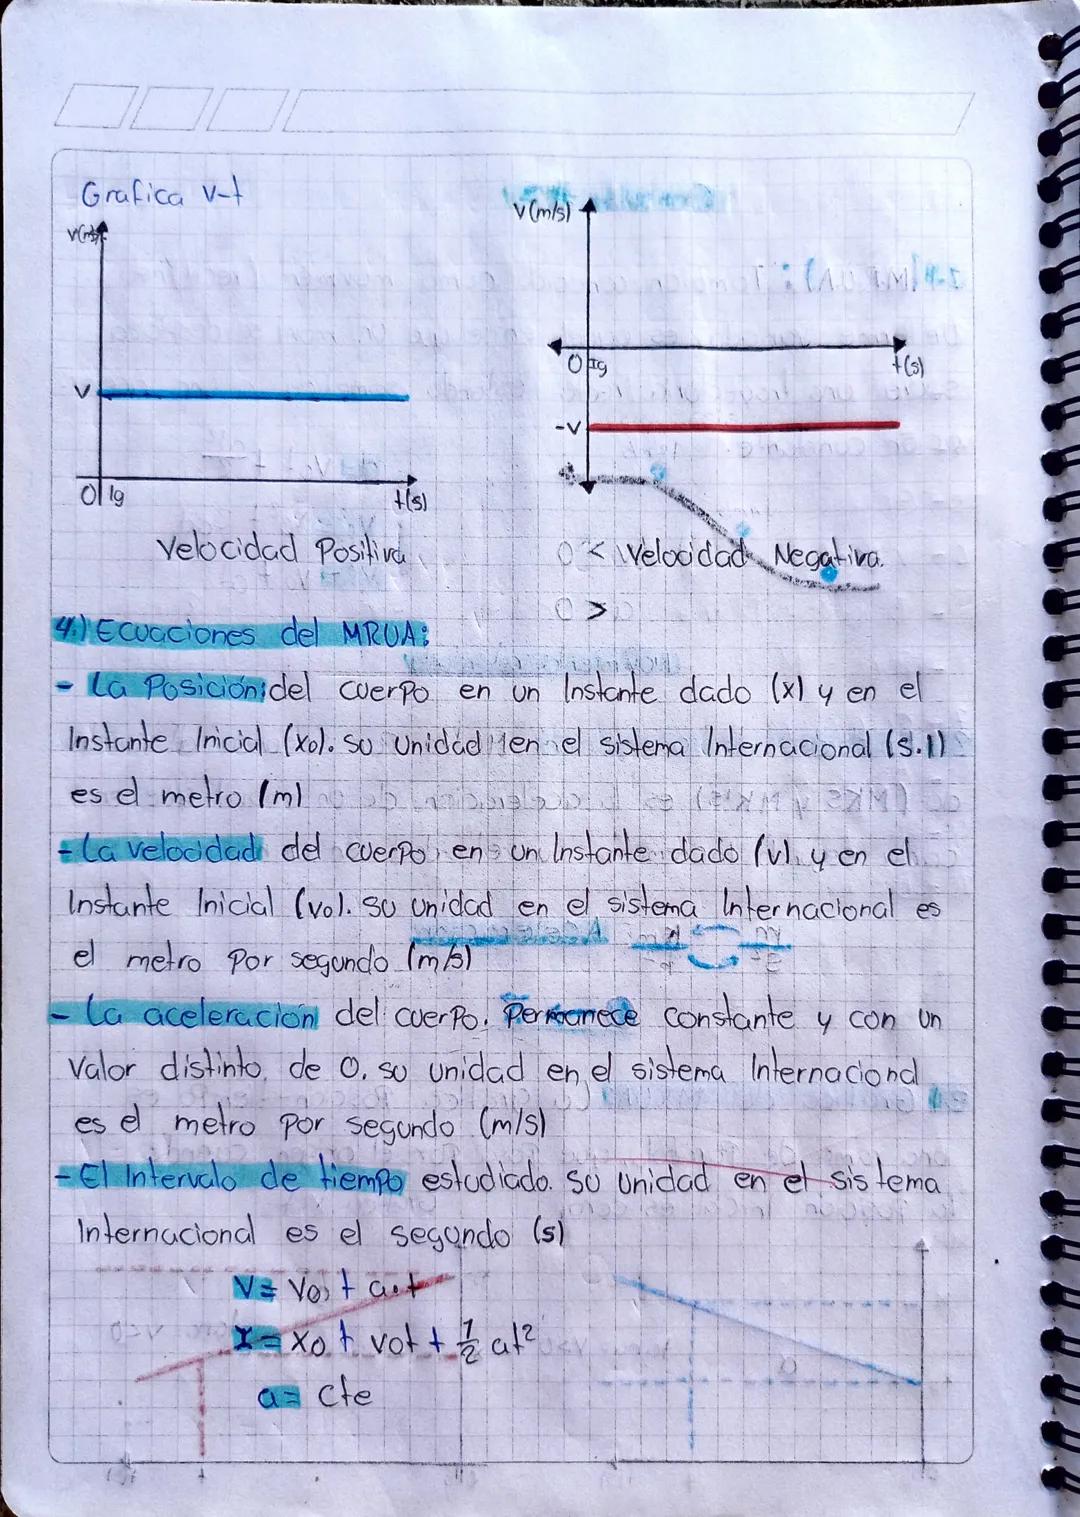 Grafica v-t
V(m/s)
V
0
t(s)
Velocidad Positiva
V(m/s)
0
t(s)
-V
Velocidad Negativa.
4.) Ecuaciones del MRUA:
- La Posición: del cuerpo en un Instante dado (x) y en el
Instante Inicial (xo). su unidad en el sistema Internacional (S.I)
es el metro (m)
- La velocidad del cuerpo en un Instante dado (v) y en el
Instante Inicial (vo). su unidad en el sistema Internacional es
el metro por segundo (m/s)
- La aceleracion del cuerpo. Permanece constante y con un
Valor distinto de 0. su unidad en el sistema Internacional
es el metro por segundo (m/s)
- El Intervalo de tiempo estudiado. su unidad en el sistema
Internacional es el segundo (s)
V= Vo + a.t
x= xo + vot + 1/2 at²
a= cte